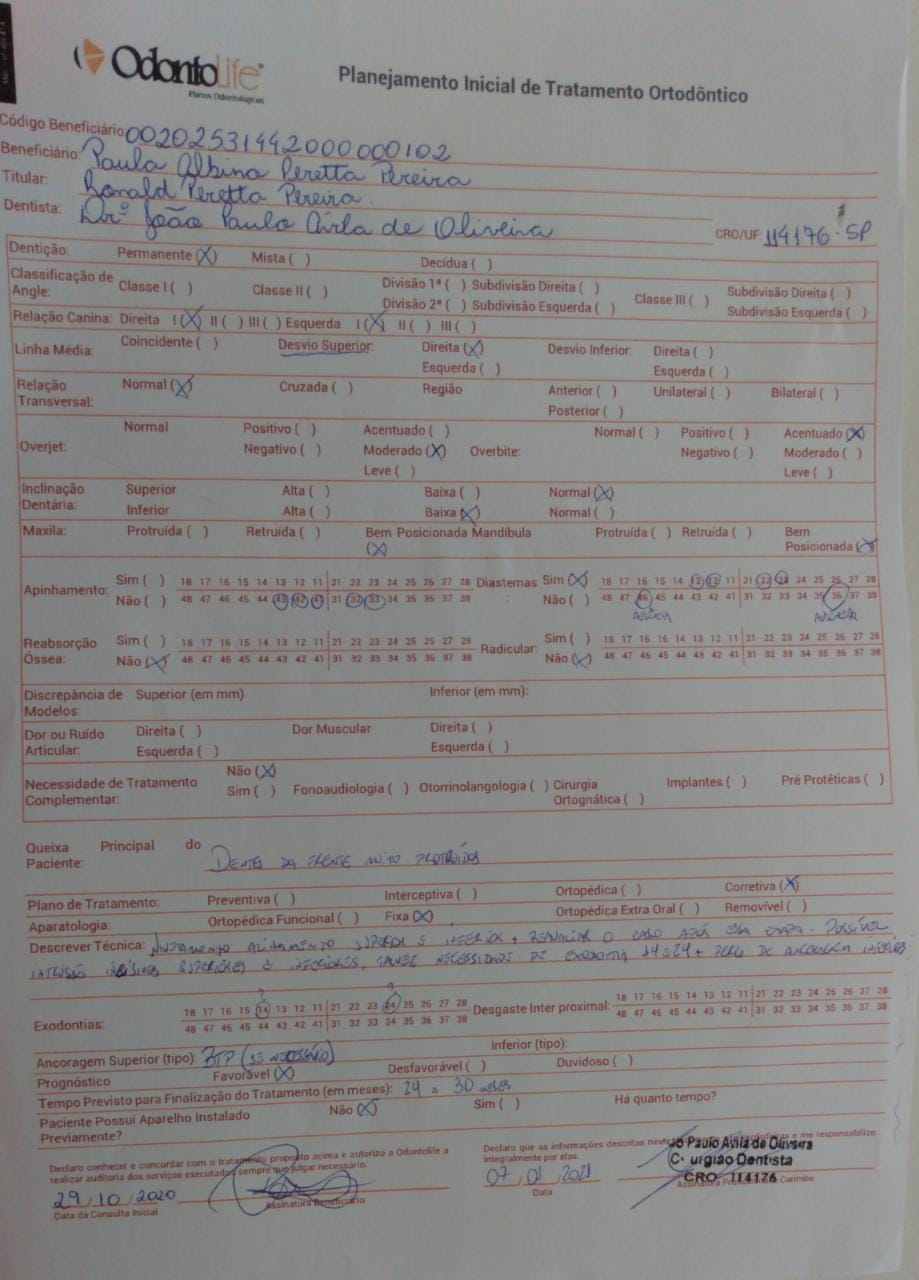 OdontoLife
Planos Odontológicos
Planejamento Inicial de Tratamento Ortodôntico
Código Beneficiário: 00202531442000000102
Beneficiário: Paula Albino Peretta Pereira
Titular: Ronald Peretta Pereira.
Dentista: Drº João Paulo Ávila de Oliveira CRO/UF: 114176 - SP
Dentição: Permanente (X) Mista ( ) Decídua ( )
Classificação de Angle: Classe I ( ) Classe II ( ) Divisão 1ª ( ) Subdivisão Direita ( ) Classe III ( ) Subdivisão Direita ( )
Divisão 2ª ( ) Subdivisão Esquerda ( ) Subdivisão Esquerda ( )
Relação Canina: Direita I (X) II ( ) III ( ) Esquerda I (X) II ( ) III ( )
Linha Média: Coincidente ( ) Desvio Superior: Direita (X) Desvio Inferior: Direita ( )
Esquerda ( ) Esquerda ( )
Relação Transversal: Normal (X) Cruzada ( ) Região Anterior ( ) Unilateral ( ) Bilateral ( )
Posterior ( )
Overjet: Normal Positivo ( ) Acentuado ( ) Overbite: Normal ( ) Positivo ( ) Acentuado (X)
Negativo ( ) Moderado (X) Negativo ( ) Moderado ( )
Leve ( ) Leve ( )
Inclinação Dentária: Superior Alta ( ) Baixa ( ) Normal (X)
Inferior Alta ( ) Baixa (X) Normal ( )
Maxila: Protruída ( ) Retruída ( ) Bem Posicionada (X) Mandíbula Protruída ( ) Retruída ( ) Bem Posicionada (X)
Apinhamento: Sim ( ) 18 17 16 15 14 13 12 11 21 22 23 24 25 26 27 28 Diastemas: Sim (X) 18 17 16 15 14 13 12 11 21 22 23 24 25 26 27 28
Não ( ) 48 47 46 45 44 43 42 41 31 32 33 34 35 36 37 38 Não ( ) 48 47 46 45 44 43 42 41 31 32 33 34 35 36 37 38
Reabsorção Óssea: Sim ( ) 18 17 16 15 14 13 12 11 21 22 23 24 25 26 27 28 Radicular: Sim ( ) 18 17 16 15 14 13 12 11 21 22 23 24 25 26 27 28
Não (X) 48 47 46 45 44 43 42 41 31 32 33 34 35 36 37 38 Não (X) 48 47 46 45 44 43 42 41 31 32 33 34 35 36 37 38
Discrepância de Modelos: Superior (em mm) Inferior (em mm):
Dor ou Ruído Articular: Direita ( ) Dor Muscular Direita ( )
Esquerda ( ) Esquerda ( )
Necessidade de Tratamento Complementar: Não (X)
Sim ( ) Fonoaudiologia ( ) Otorrinolangologia ( ) Cirurgia Ortognática ( ) Implantes ( ) Pré Protéticas ( )
Queixa Principal do Paciente: DENTES DA FRENTE MUITO PROTRUÍDOS
Plano de Tratamento: Preventiva ( ) Interceptiva ( ) Ortopédica ( ) Corretiva (X)
Aparatologia: Ortopédica Funcional ( ) Fixa (X) Ortopédica Extra Oral ( ) Removível ( )
Descrever Técnica: ALINHAMENTO SUPERIOR E INFERIOR + REAVALIAR O CASO APÓS ESSA ETAPA. POSSÍVEL
INTRUSÃO INCISIVOS SUPERIORES E INFERIORES, TALVEZ NECESSIDADE DE EXODONTIA 14 E 24 + PERDA DE ANCORAGEM
Exodontias: 18 17 16 15 14 13 12 11 21 22 23 24 25 26 27 28 Desgaste Inter proximal: 18 17 16 15 14 13 12 11 21 22 23 24 25 26 27 28
48 47 46 45 44 43 42 41 31 32 33 34 35 36 37 38 48 47 46 45 44 43 42 41 31 32 33 34 35 36 37 38
Ancoragem Superior (tipo): BTP (SE NECESSÁRIO) Inferior (tipo):
Prognóstico Favorável (X) Desfavorável ( ) Duvidoso ( )
Tempo Previsto para Finalização do Tratamento (em meses): 24 a 30 MESES
Paciente Possui Aparelho Instalado Previamente? Não (X) Sim ( ) Há quanto tempo?
Declaro conhecer e concordar com o tratamento proposto acima e autorizo a Odontolife a
realizar auditoria dos serviços executados sempre que julgar necessário.
29/10/2020
Data da Consulta Inicial
Assinatura Beneficiário
Declaro que as informações descritas e me responsabilizo
integralmente por elas.
07/01/2021
Data
Paulo Avila de Oliveira
Cirurgião Dentista
CRO 114176
Carimbo